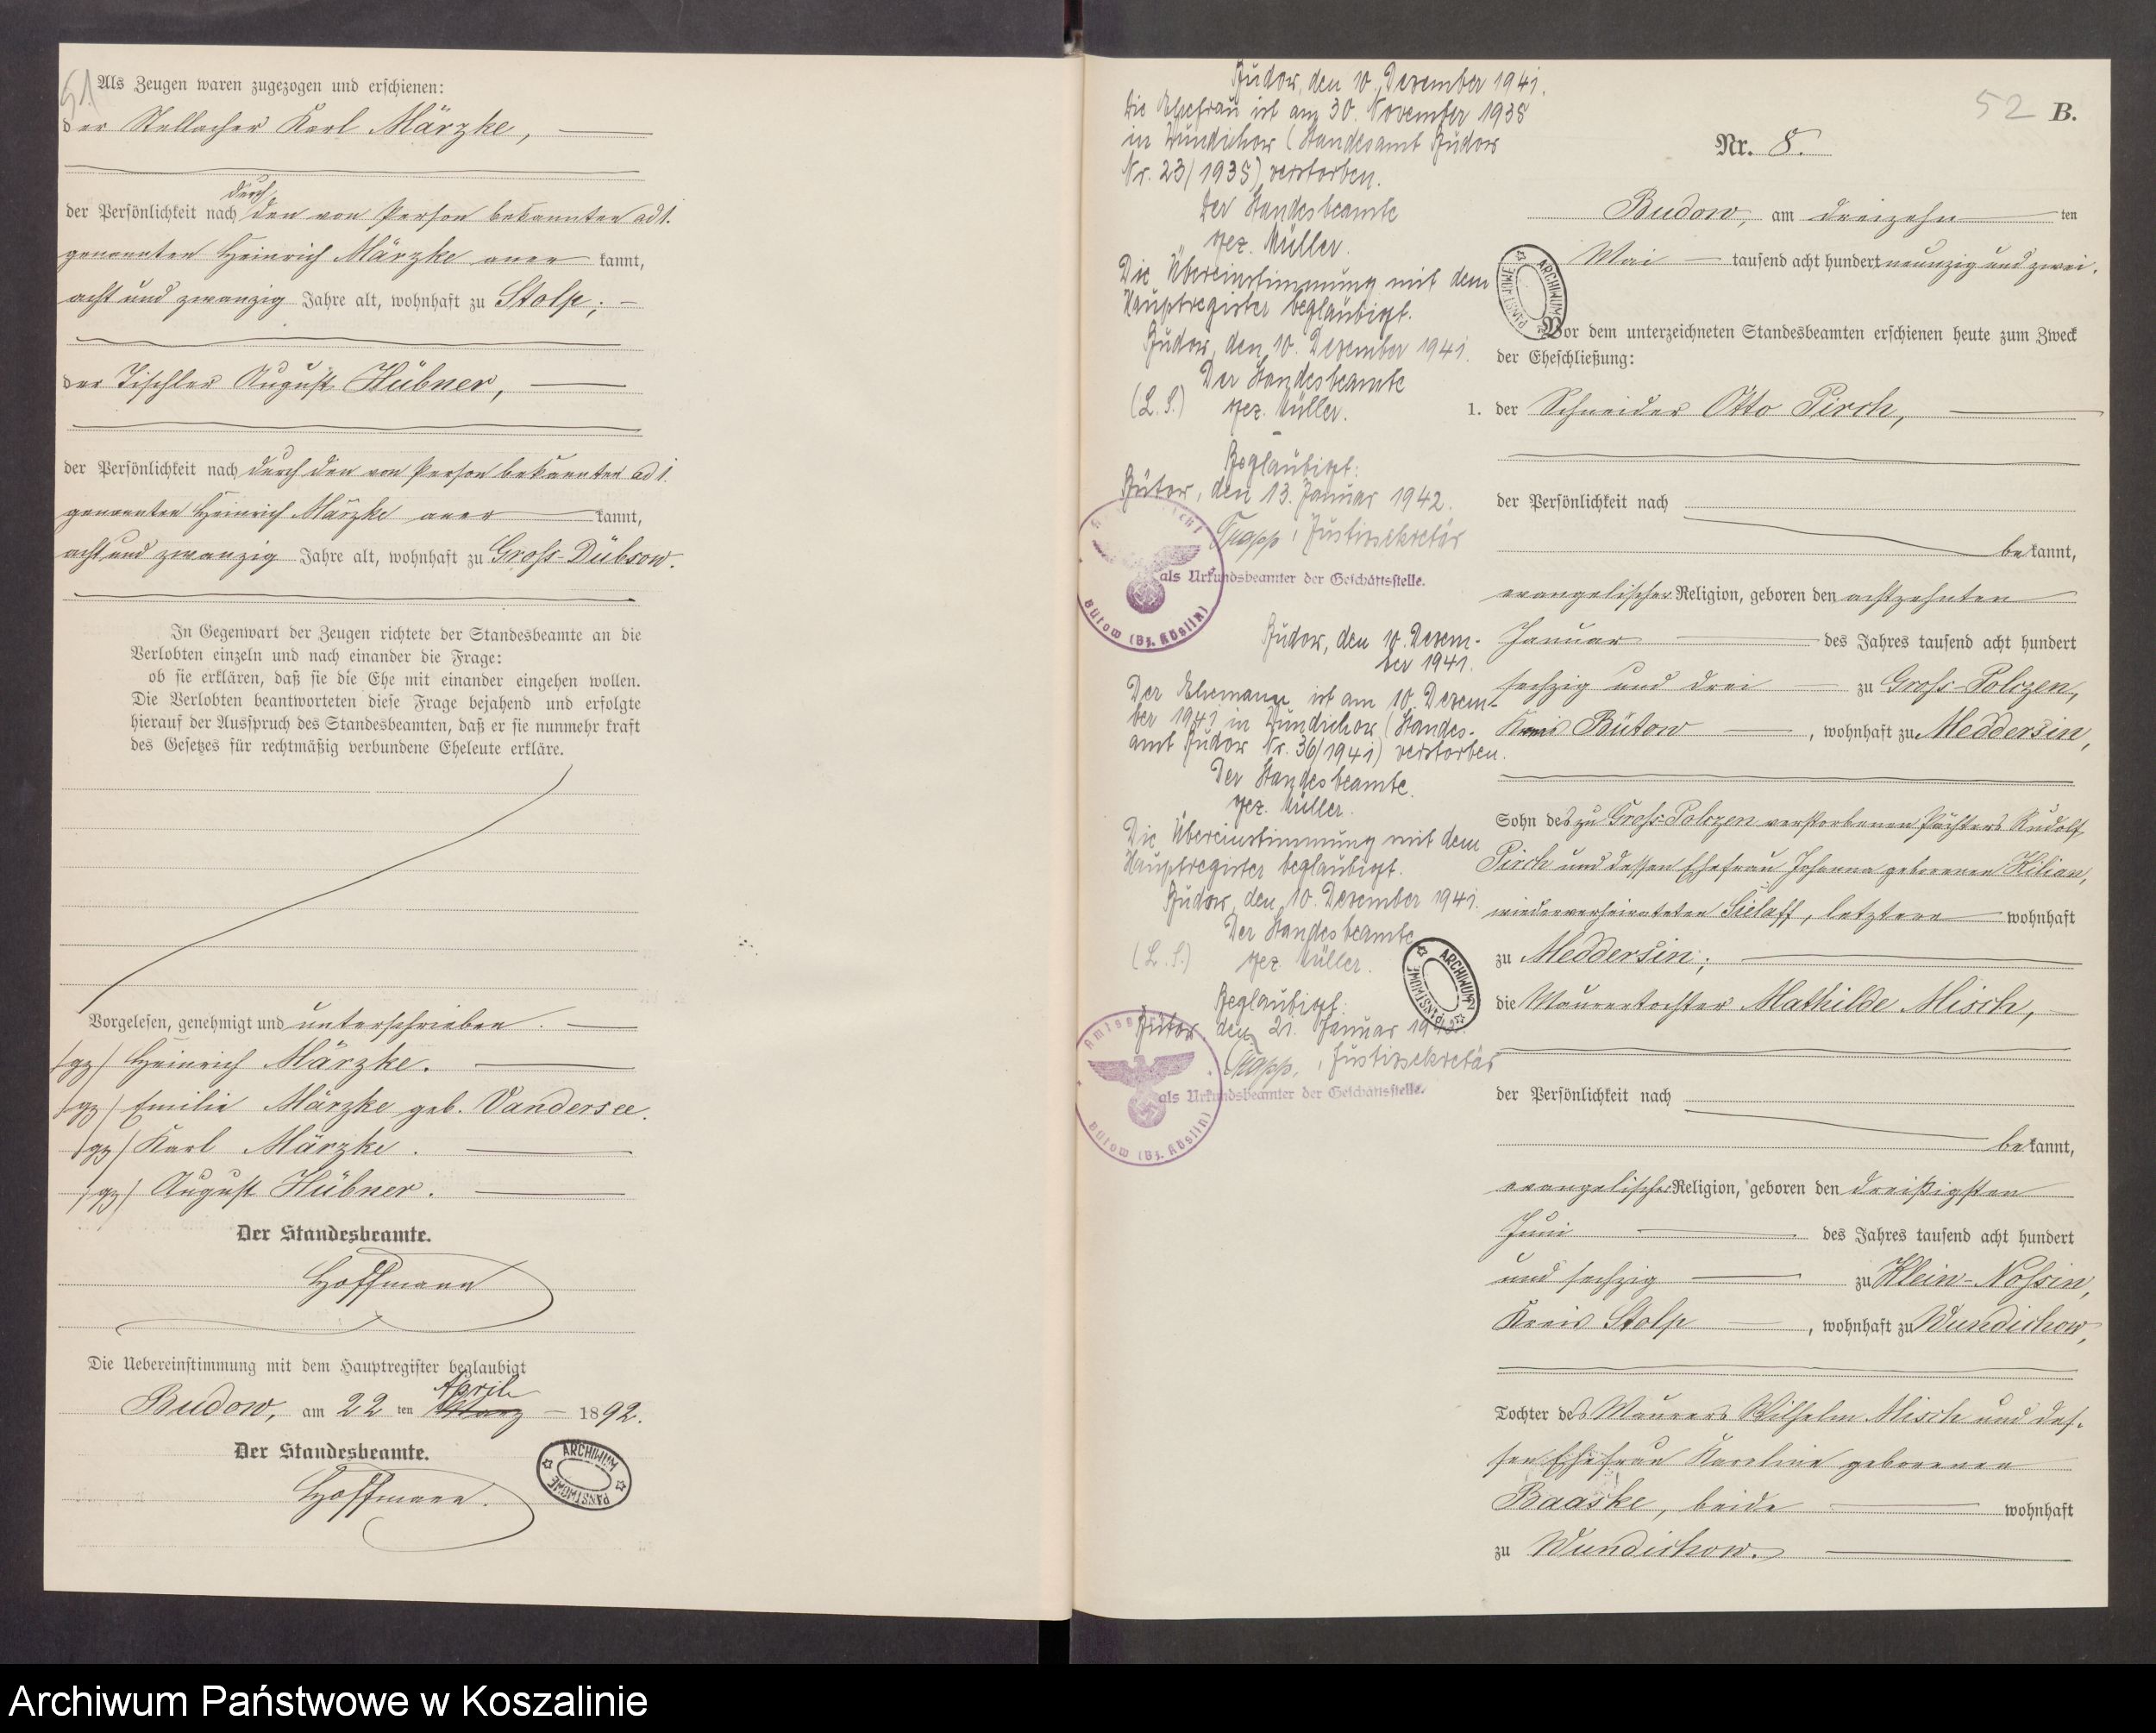 51
Als Zeugen waren zugezogen und erschienen:
der Stellacher Karl Märzke,
durch
der Persönlichkeit nach den von Person bekannten ad 1.
genannten Heinrich Märzke aner kannt,
acht und zwanzig Jahre alt, wohnhaft zu Stolp;
der Tischler August Hübner,
der Persönlichkeit nach durch den von Person bekannten ad 1.
genannten Heinrich Märzke aner kannt,
acht und zwanzig Jahre alt, wohnhaft zu Groß-Dübsow.
In Gegenwart der Zeugen richtete der Standesbeamte an die
Verlobten einzeln und nach einander die Frage:
ob sie erklären, daß sie die Ehe mit einander eingehen wollen.
Die Verlobten beantworteten diese Frage bejahend und erfolgte
hierauf der Ausspruch des Standesbeamten, daß er sie nunmehr kraft
des Gesetzes für rechtmäßig verbundene Eheleute erkläre.
Vorgelesen, genehmigt und unterschrieben.
/gz/ Heinrich Märzke.
/gz/ Emilie Märzke geb. Vandersee.
/gz/ Karl Märzke.
/gz/ August Hübner.
Der Standesbeamte.
Hoffmann
Die Uebereinstimmung mit dem Hauptregister beglaubigt
April
Budow, am 22 ten März 1892.
Der Standesbeamte.
Hoffmann.
ARCHIWUM PAŃSTWOWE
Budow, den 10. Dezember 1941.
Die Ehefrau ist am 30. November 1938
in Wundichow (Standesamt Budow
Nr. 23/1938) verstorben.
Der Standesbeamte
gez. Müller.
Die Übereinstimmung mit dem
Hauptregister beglaubigt.
Budow, den 10. Dezember 1941.
Der Standesbeamte
(L. S.) gez. Müller.
Beglaubigt:
Bütow, den 13. Januar 1942.
Justizsekretär
als Urkundsbeamter der Geschäftsstelle.
Bütow (Bz. Köslin)
Budow, den 10. Dezem-
ber 1941.
Der Ehemann ist am 10. Dezem-
ber 1941 in Wundichow (Standes-
amt Budow Nr. 36/1941) verstorben.
Der Standesbeamte.
gez. Müller.
Die Übereinstimmung mit dem
Hauptregister beglaubigt.
Budow, den 10. Dezember 1941.
Der Standesbeamte
(L. S.) gez. Müller.
Beglaubigt:
Bütow, den 21. Januar
Justizsekretär
als Urkundsbeamter der Geschäftsstelle.
Bütow (Bz. Köslin)
ARCHIWUM PAŃSTWOWE
52 B.
Nr. 8.
Budow, am dreizehn ten
Mai tausend acht hundert neunzig und zwei.
ARCHIWUM PAŃSTWOWE
Vor dem unterzeichneten Standesbeamten erschienen heute zum Zweck
der Eheschließung:
1. der Schneider Otto Pirch,
der Persönlichkeit nach
be kannt,
evangelischer Religion, geboren den achtzehnten
Januar des Jahres tausend acht hundert
sechzig und drei zu Groß-Polczen,
Kreis Bütow, wohnhaft zu Meddersin,
Sohn des zu Groß-Polczen verstorbenen Pächters Rudolf
Pirch und dessen Ehefrau Johanna geborenen Kilian,
wiederverheirateten Sielaff, letztere wohnhaft
zu Meddersin;
die Maurertochter Mathilde Misch,
der Persönlichkeit nach
be kannt,
evangelischer Religion, geboren den dreißigsten
Juni des Jahres tausend acht hundert
und sechzig zu Klein-Nossin,
Kreis Stolp, wohnhaft zu Wundichow,
Tochter des Maurers Wilhelm Misch und des-
sen Ehefrau Karoline geborenen
Baaske, beide wohnhaft
zu Wundichow.
Archiwum Państwowe w Koszalinie